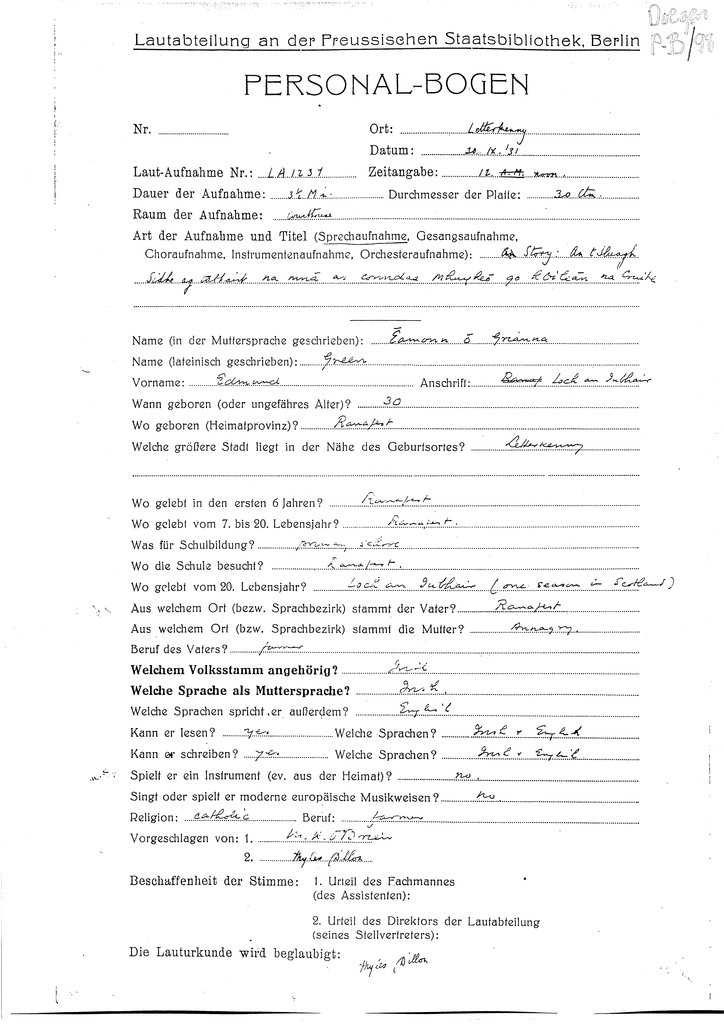 Doegen
P-B/98
Lautabteilung an der Preussischen Staatsbibliothek, Berlin
PERSONAL-BOGEN
Nr. Ort: Letterkenny
Datum: IX. '31
Laut-Aufnahme Nr.: LA 1231 Zeitangabe: 12 A.M. noon.
Dauer der Aufnahme: Mi. Durchmesser der Platte: 30 Cm.
Raum der Aufnahme: Courthouse
Art der Aufnahme und Titel (Sprechaufnahme, Gesangsaufnahme,
Choraufnahme, Instrumentenaufnahme, Orchesteraufnahme): Story: An tSluagh
Sidhe ag na mná as conndae Mhuigheó go hOileán na Cruite
Name (in der Muttersprache geschrieben): Éamonn ó Grianna
Name (lateinisch geschrieben): Green
Vorname: Edmund Anschrift: Loch an Iubhair
Wann geboren (oder ungefähres Alter)? 30
Wo geboren (Heimatprovinz)? Ranafest
Welche größere Stadt liegt in der Nähe des Geburtsortes? Letterkenny
Wo gelebt in den ersten 6 Jahren? Ranafest
Wo gelebt vom 7. bis 20. Lebensjahr? Ranafest.
Was für Schulbildung?
Wo die Schule besucht? Ranafest.
Wo gelebt vom 20. Lebensjahr? Loch an Iubhair (one season in Scotland)
Aus welchem Ort (bezw. Sprachbezirk) stammt der Vater? Ranafest
Aus welchem Ort (bzw. Sprachbezirk) stammt die Mutter? Annagry.
Beruf des Vaters? farmer
Welchem Volksstamm angehörig? Irish
Welche Sprache als Muttersprache? Irish.
Welche Sprachen spricht er außerdem? English
Kann er lesen? yes Welche Sprachen? Irish & English
Kann er schreiben? yes Welche Sprachen? Irish & English
Spielt er ein Instrument (ev. aus der Heimat)? no.
Singt oder spielt er moderne europäische Musikweisen? No.
Religion: catholic Beruf: farmer
Vorgeschlagen von: 1. O'Brien
2. Myles Dillon
Beschaffenheit der Stimme: 1. Urteil des Fachmannes
(des Assistenten):
2. Urteil des Direktors der Lautabteilung
(seines Stellvertreters):
Die Lauturkunde wird beglaubigt: Myles Dillon